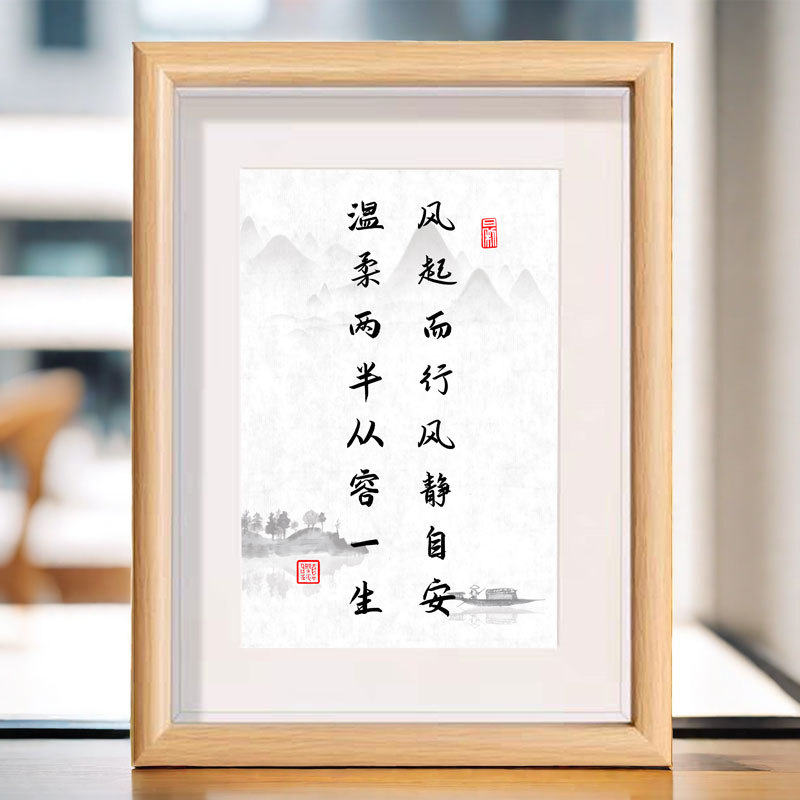 风起而行风静自安
温柔两半从容一生